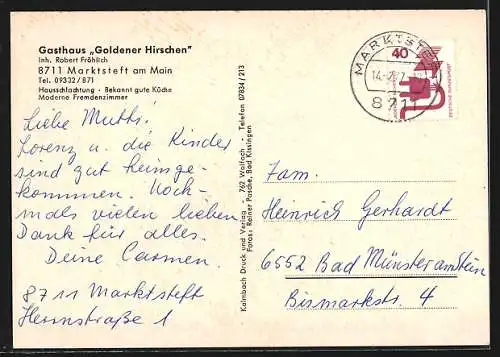 Gasthaus „Goldener Hirschen"
Inh. Robert Fröhlich
8711 Marktsteft am Main
Tel. 09332/871
Hausschlachtung - Bekannt gute Küche
Moderne Fremdenzimmer
Liebe Mutti!
Lorenz u. die Kinder
sind gut heimge-
kommen. Noch-
mals vielen lieben
Dank für alles.
Deine Carmen.
8711 Marktsteft
Herrnstraße 1
Kalmbach Druck und Verlag · 762 Wolfach · Telefon 07834/213
Fotos: Rainer Pasche, Bad Kissingen
MARKTSTEFT
8711
40
DEUTSCHE BUNDESPOST
Fam.
Heinrich Gerhardt
6552 Bad Münster am Stein
Bismarkstr. 4